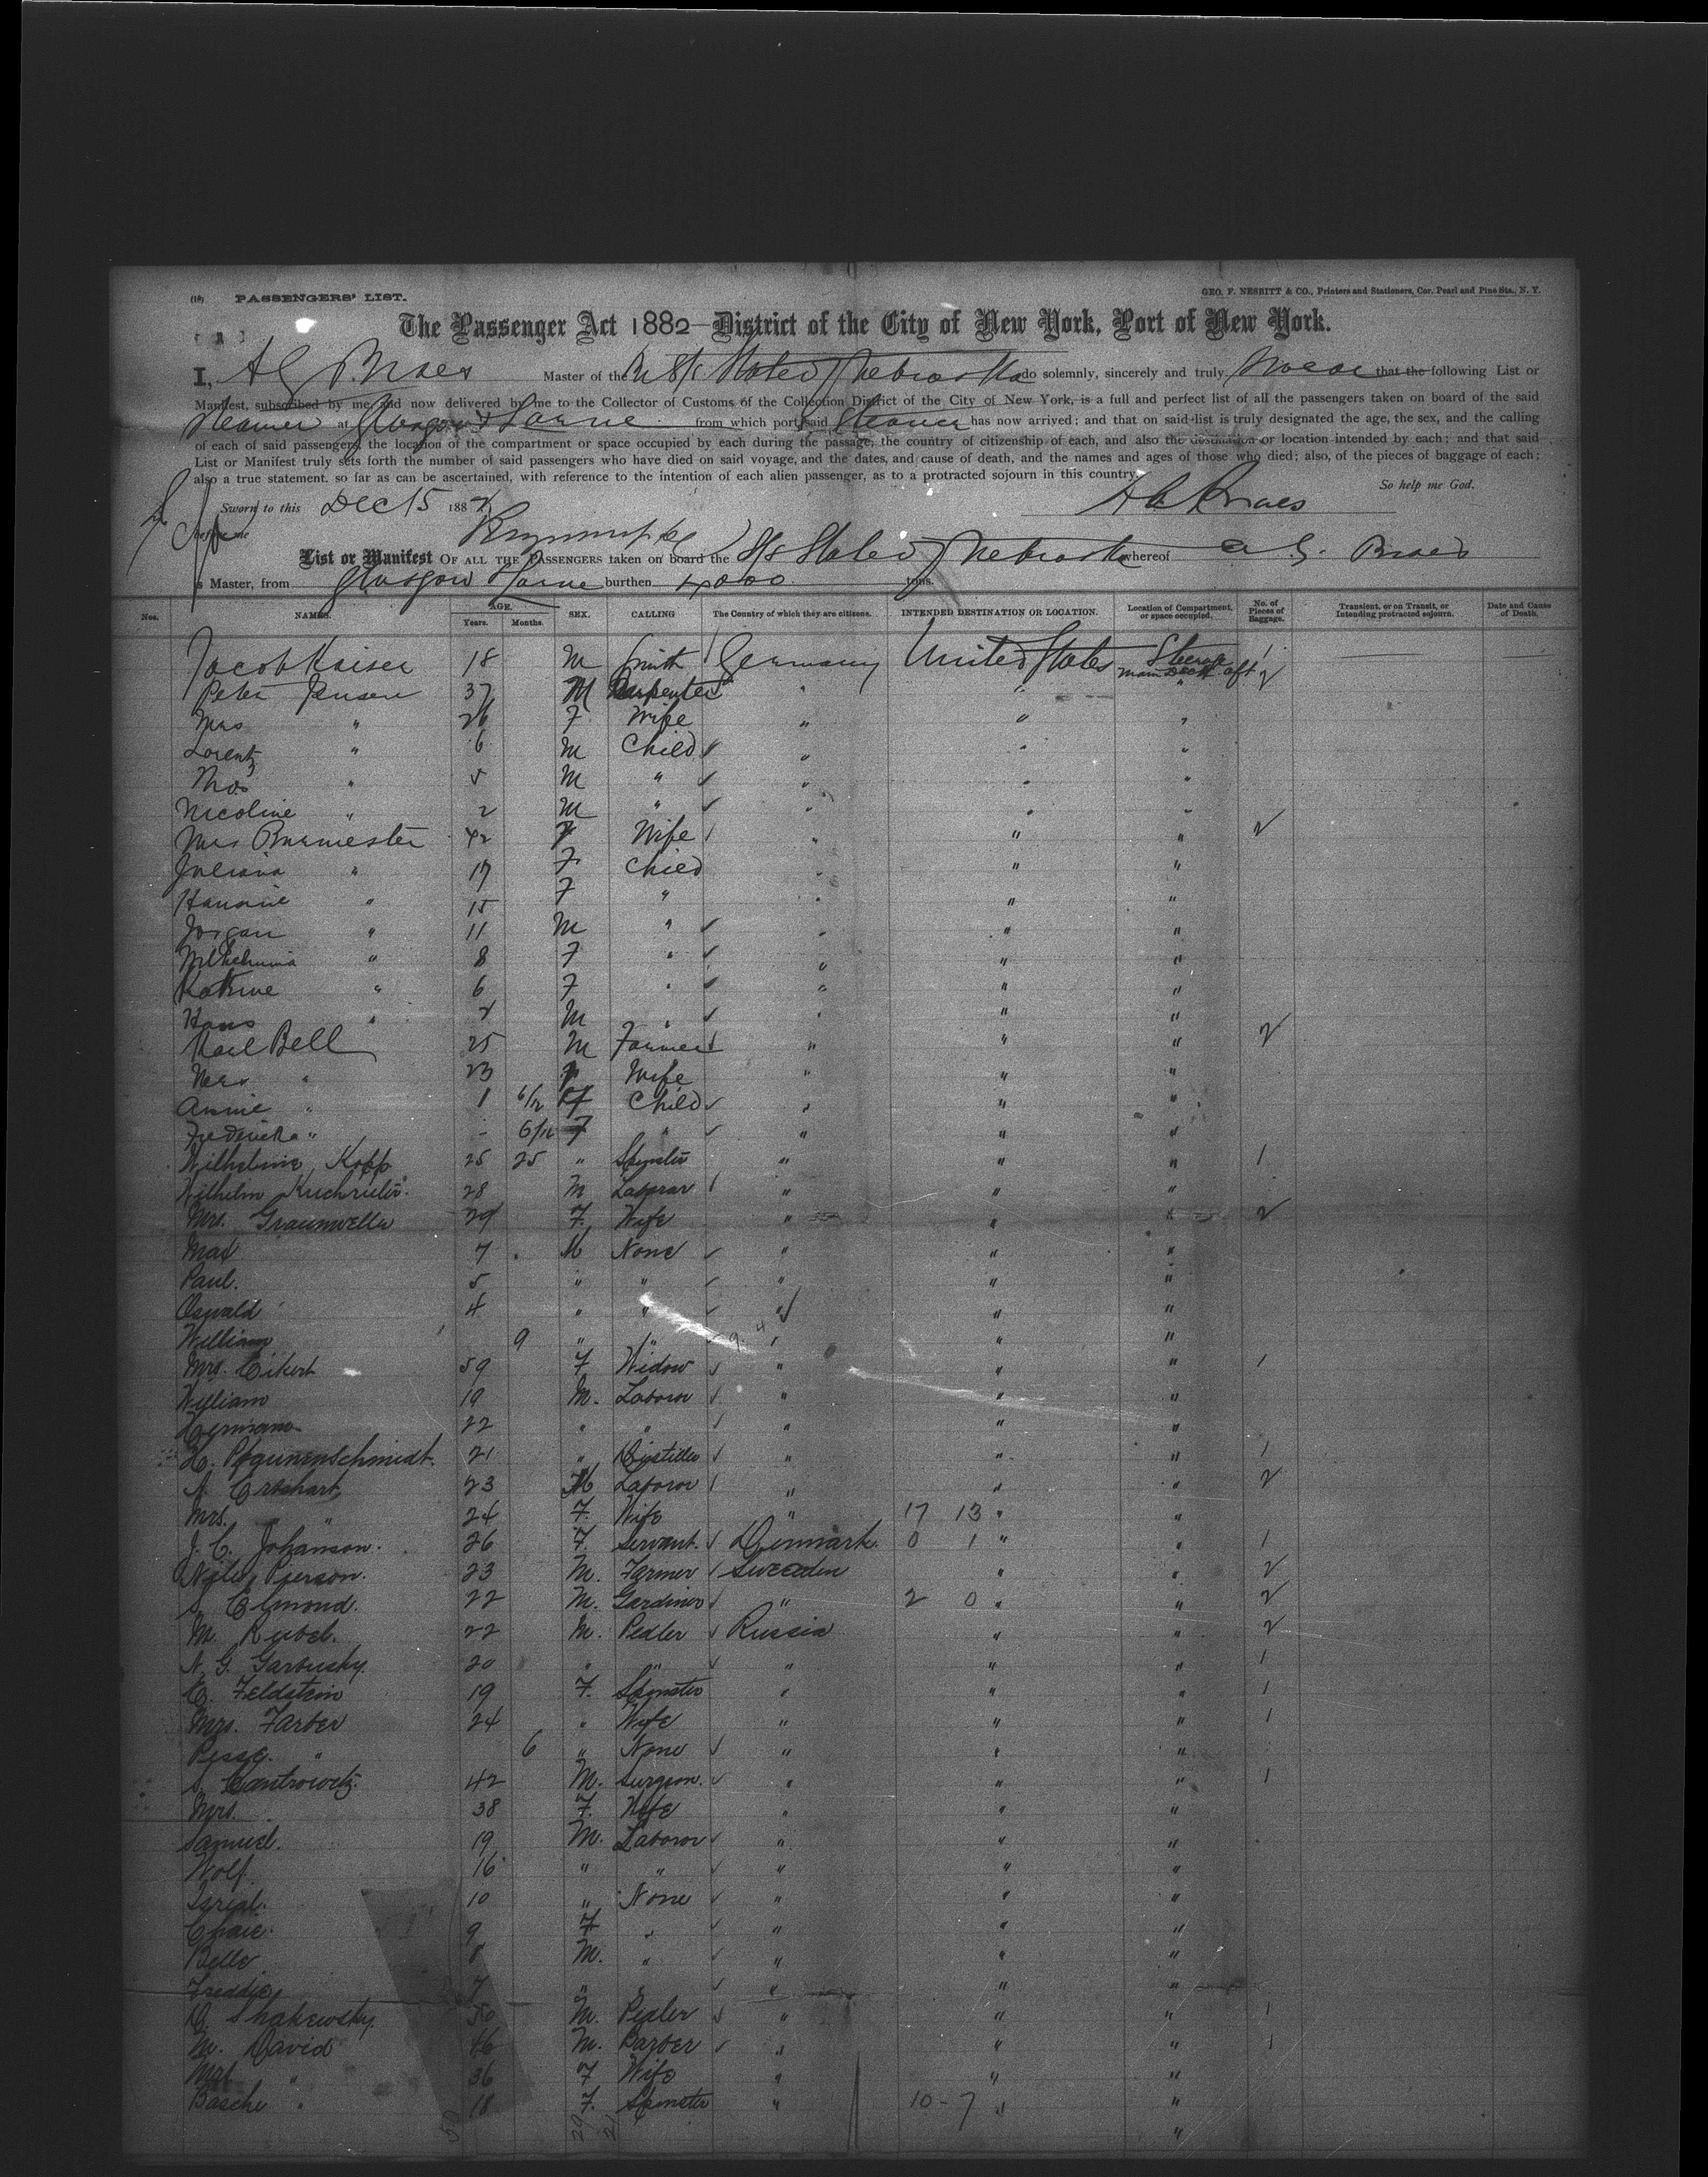 (18) PASSENGERS' LIST. GEO. F. NESBITT & CO., Printers and Stationers, Cor. Pearl and Pine Sts., N. Y.
The Passenger Act 1882—District of the City of New York, Port of New York.
I, A G Braes Master of the S/S State of Nebraska do solemnly, sincerely and truly swear that the following List or
Manifest, subscribed by me and now delivered by me to the Collector of Customs of the Collection District of the City of New York, is a full and perfect list of all the passengers taken on board of the said
Steamer at Glasgow & Larne from which port said Steamer has now arrived; and that on said list is truly designated the age, the sex, and the calling
of each of said passengers, the location of the compartment or space occupied by each during the passage, the country of citizenship of each, and also the destination or location intended by each; and that said
List or Manifest truly sets forth the number of said passengers who have died on said voyage, and the dates, and cause of death, and the names and ages of those who died; also, of the pieces of baggage of each;
also a true statement, so far as can be ascertained, with reference to the intention of each alien passenger, as to a protracted sojourn in this country.
So help me God.
Sworn to this Dec 15 188 A G Braes
before me
List or Manifest OF ALL THE PASSENGERS taken on board the S/S State of Nebraska whereof A. G. Braes
is Master, from Glasgow & Larne burthen 4000 tons.
Nos. NAMES. AGE. Years. Months. SEX. CALLING The Country of which they are citizens. INTENDED DESTINATION OR LOCATION. Location of Compartment, or space occupied. No. of Pieces of Baggage. Transient, or on Transit, or Intending protracted sojourn. Date and Cause of Death.
Jacob Kaiser 18 M Smith Germany United States Steerage Main Deck aft 1
Peter Jensen 37 M Carpenter " " " 2
Mrs " 26 F Wife " " "
Lorentz " 6 M Child " " "
Thos " 5 M " " " "
Nicoline " 2 M " " " "
Mrs Burmester 42 F Wife " " " 2
Juliana " 17 F Child " " "
Hansine " 15 F " " " "
Jorgan " 11 M " " " "
Wilhelmina " 8 F " " " "
Katrine " 6 F " " " "
Hans " 2 M " " " "
Karl Bell 25 M Farmer " " " 2
Mrs " 23 F Wife " " "
Annie " 1 6/12 F Child " " "
Fredericka " - 6/12 F " " " "
Wilhelmine Kopp 25 25 " Spinster " " " 1
Wilhelm 28 M Laborar " " "
Mrs. Graumweller 29 F. Wife " " " 2
Max 7 M None " " "
Paul. 5 " " " " "
Oswald 4 " " " " "
William 9 " " " " "
Mrs. Eikert 59 F Widow " " " 1
William 19 M. Laboror " " "
Hermann 22 " " " " "
H. Pfannenschmidt. 21 " Distiller " " " 1
A. Ershart 23 M Laboror " " " 2
Mrs. " 24 F. Wife " 17 13 " "
J. C. Johanson. 26 F. Servant. Denmark. 0 1 " " 1
Nils Pierson. 23 M. Farmer Sweeden " " 2
S. Elmond. 22 M. Gardinor " 2 0 " " 2
M. Rubel. 22 M. Pedler Russia " " 2
N. G. Garbusky. 20 " " " " " 1
C. Feldstein 19 F. Spinster " " " 1
Mrs. Farber 24 " Wife " " " 1
Pesse. " 6 " None " " "
S. Cantrowitz. 42 M. Surgeon. " " " 1
Mrs. 38 F. Wife " " "
Samuel. 19 M. Laboror " " "
Wolf. 16 " " " " "
Isreal. 10 " None " " "
Chaie. 9 F. " " " "
Belle 8 M. " " " "
Freddie 7 " " " " "
C. Shakewsky. 50 M. Pedler " " " 1
M. David 46 M. Barber " " " 1
Mrs " 36 F Wife " " "
Basche " 18 F. Spinster " 10-7 " "
50 29 21 "